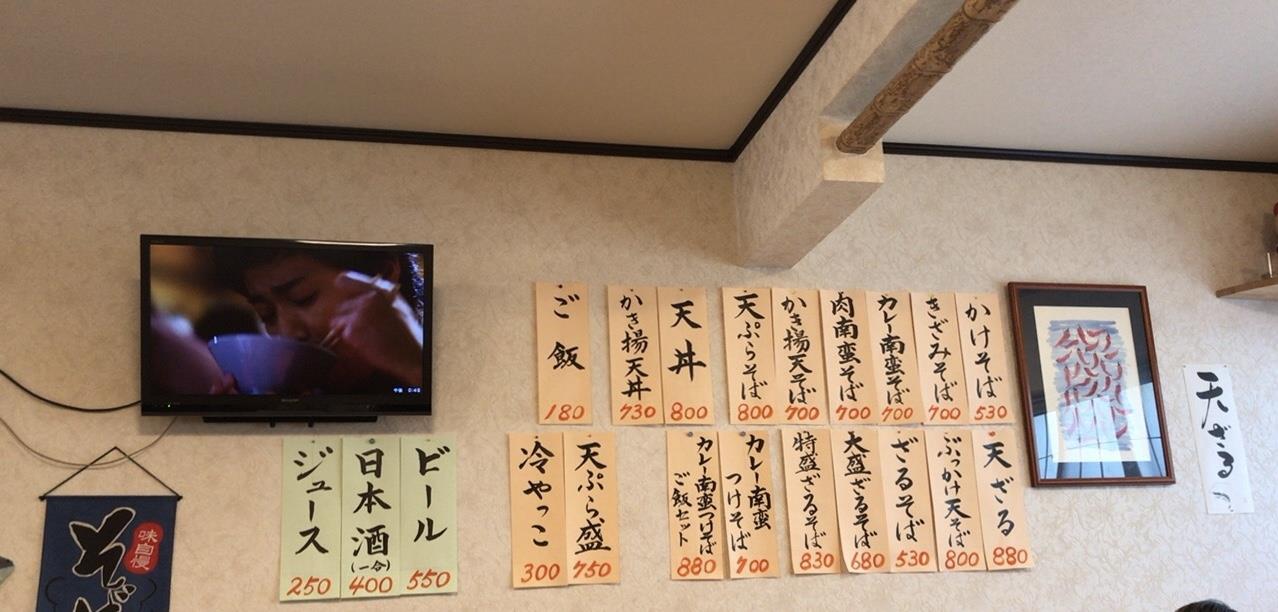 かけそば
530
きざみそば
700
カレー南蛮そば
700
肉南蛮そば
700
かき揚天そば
700
天ぷらそば
800
天丼
800
かき揚天丼
730
ご飯
180
天ざる
880
ぶっかけ天そば
800
ざるそば
530
大盛ざるそば
680
特盛ざるそば
830
カレー南蛮
つけそば
700
カレー南蛮つけそば
ご飯セット
880
天ぷら盛
750
冷やっこ
300
ビール
550
日本酒
(一合)
400
ジュース
250
味自慢
そば
天ざる